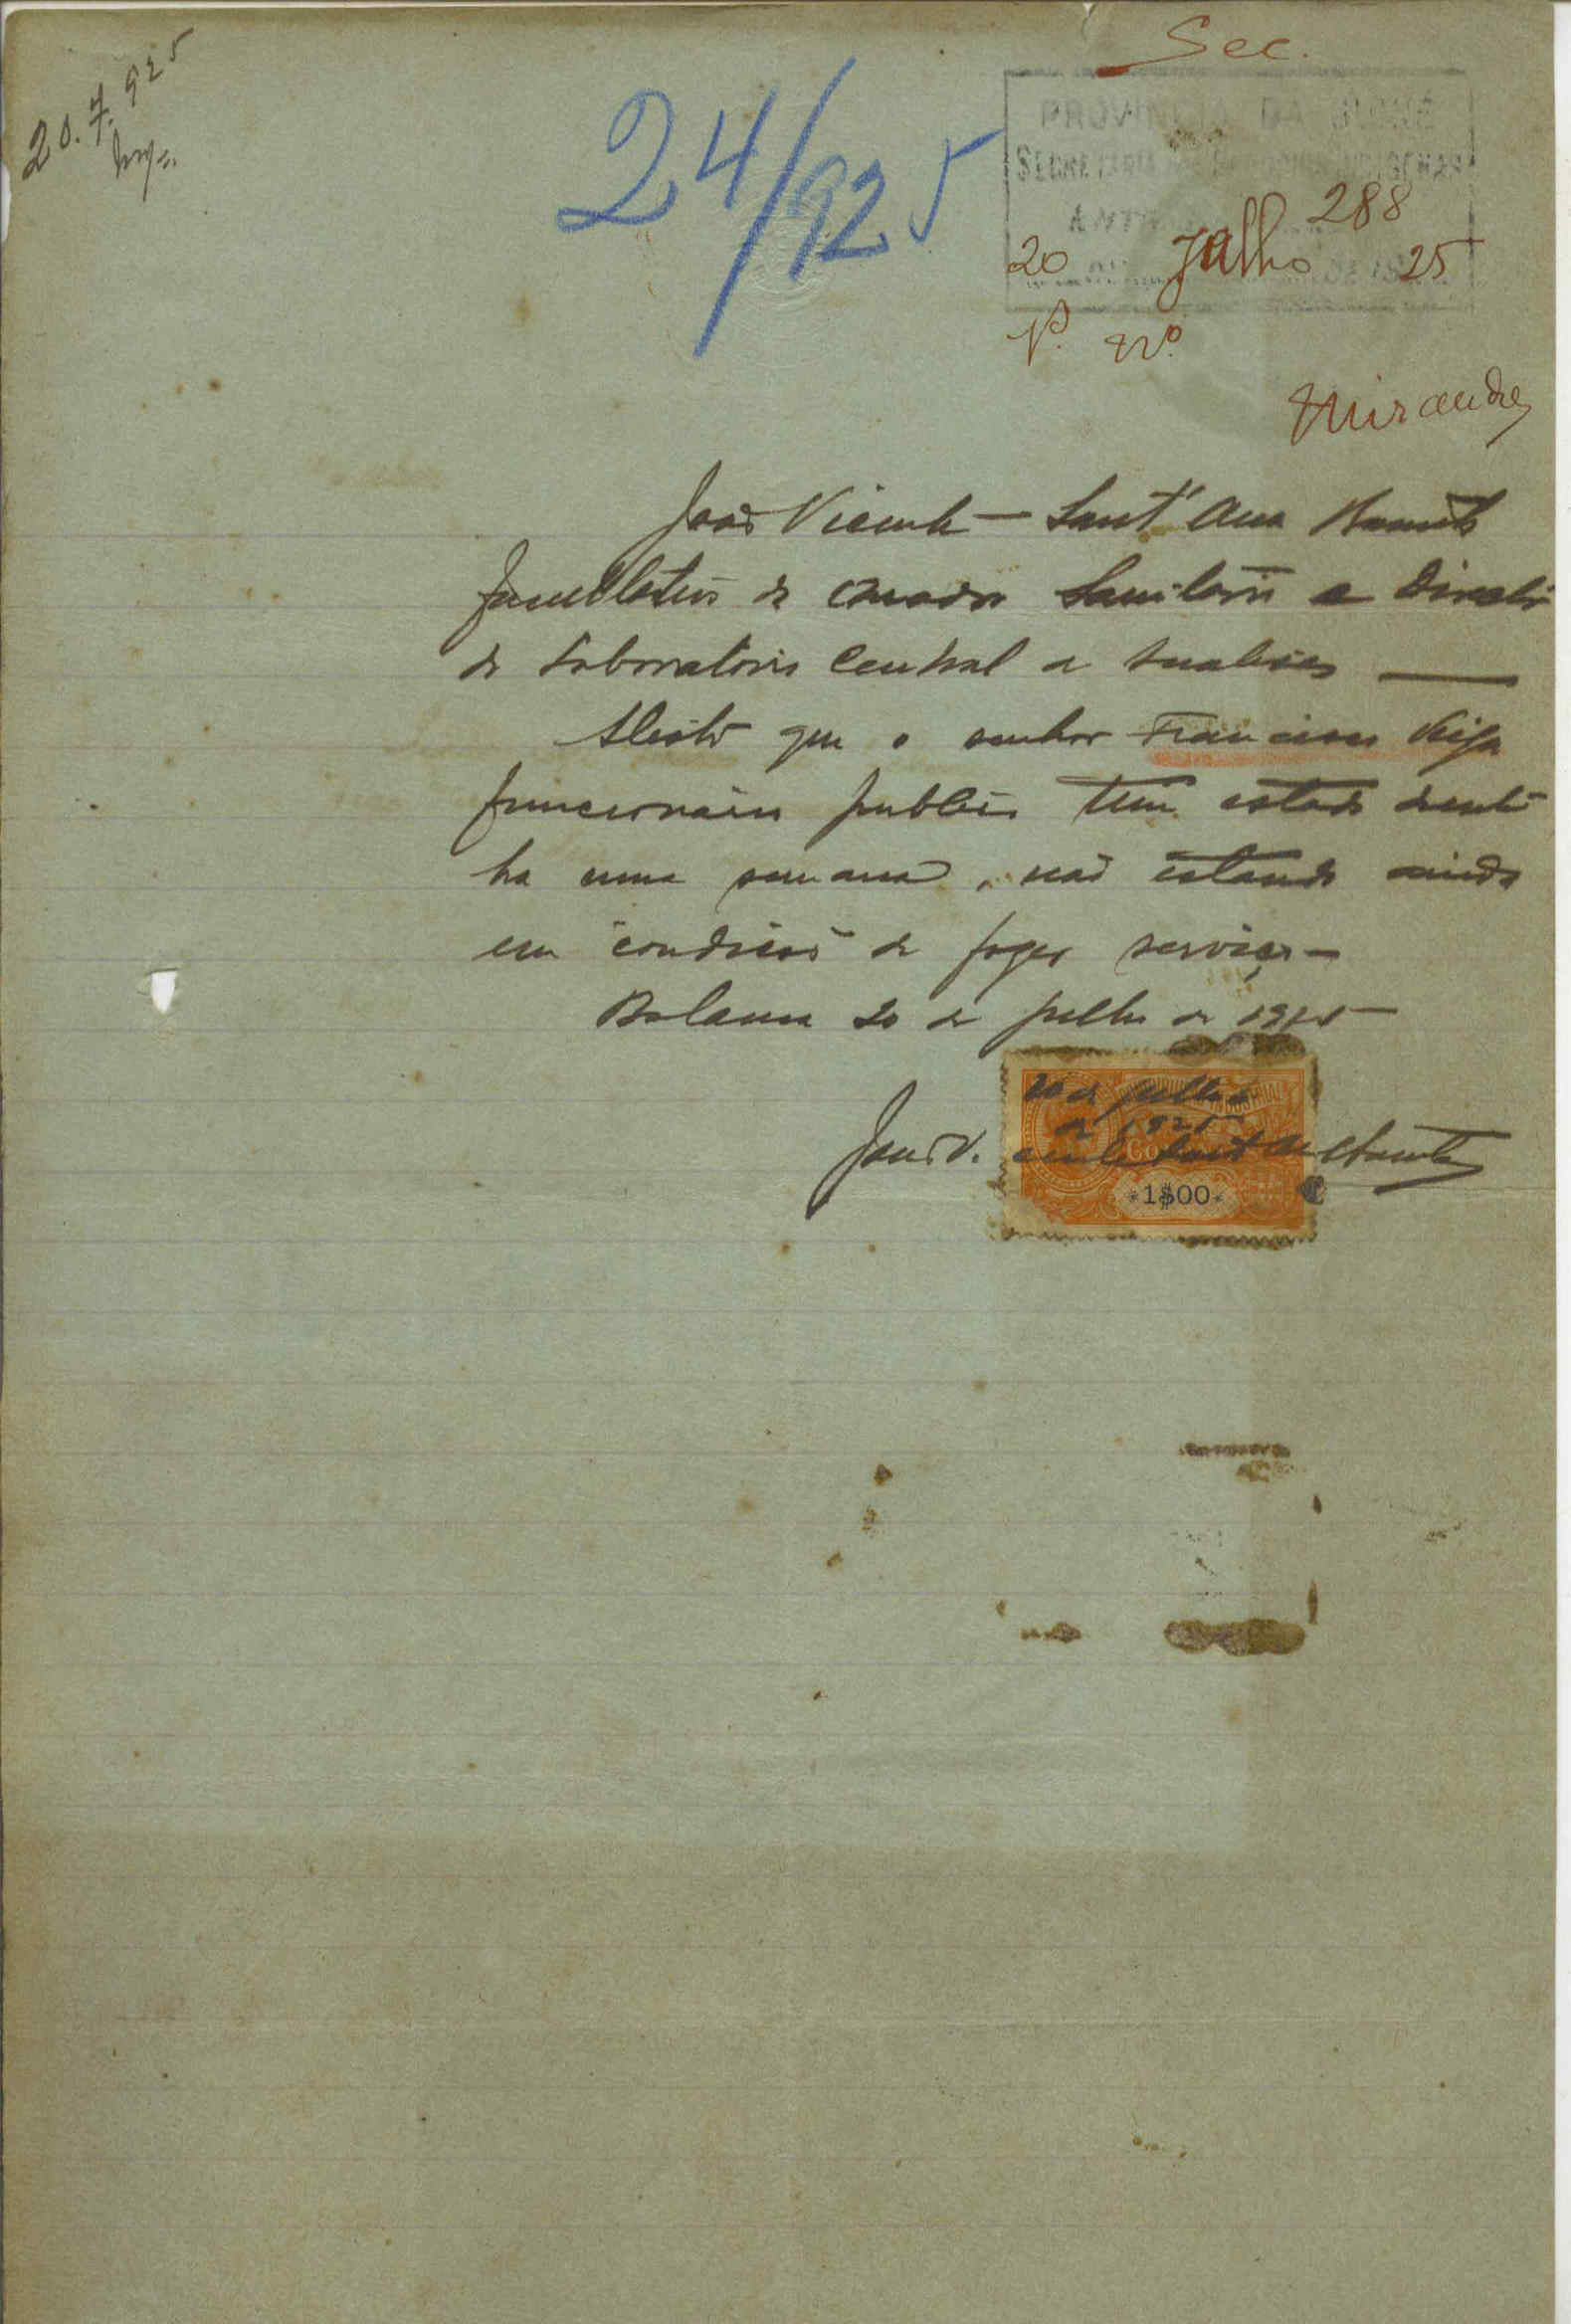 20.7.925
Sec.
24/925
PROVINCIA DA GUINÉ
SECRETARIA DOS NEGOCIOS INDIGENAS
288
20 Julho 25
Miranda
João Vicente Sant'Ana Barreto
facultativo do quadro sanitario e Director
do Laboratorio Central de Analises
Atesto que o senhor Francisco Veiga
funcionario publico tem estado doente
ha uma semana, não estando ainda
em condicões de fazer serviço —
Bolama 20 de julho de 1925
20 de julho
de 1925
João Vicente Sant'Ana Barreto
*1$00*